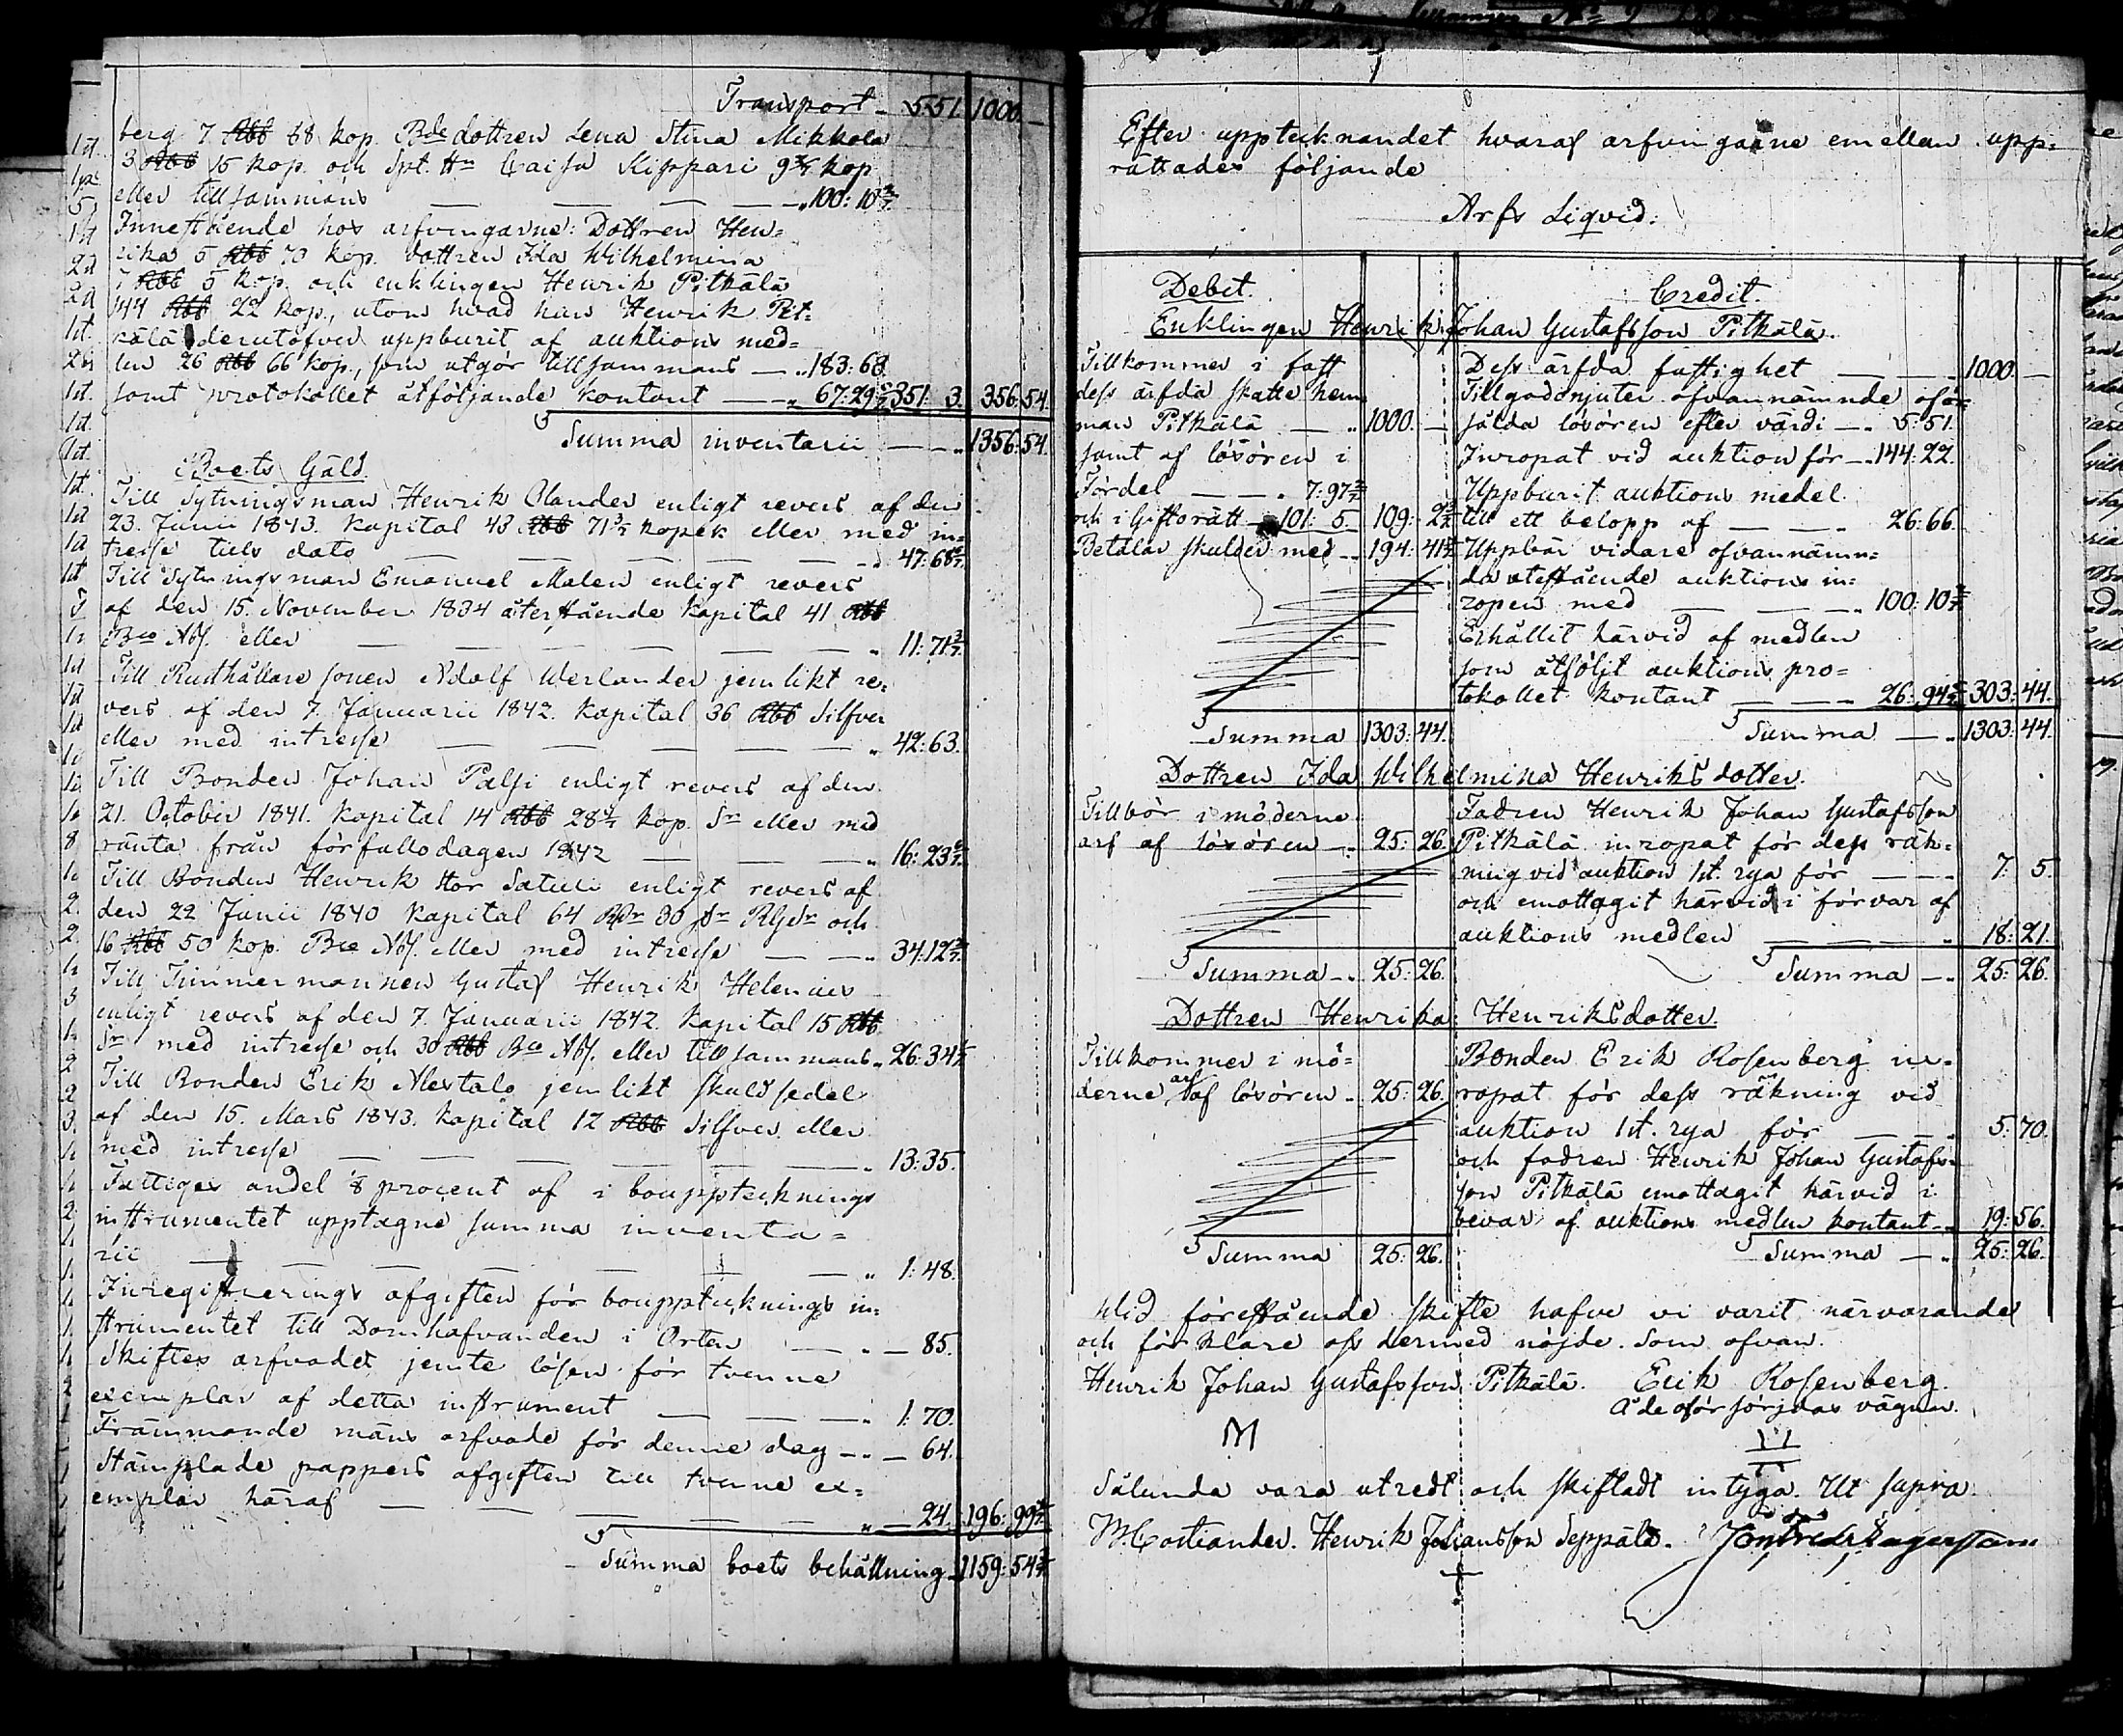 Transport 5:51. 1000. —
berg 7 Rbl 68 kop. Bde dottren Lena Stina Mikkola
3 Rbl 15 kop. och Spt. Hn Caisa Kippari 9 2/7 kop
eller tillsammans — — — — „ 100: 10 2/7
Innestående hos arfvingarne: Dottren Hen=
rika 5 Rbl 70 kop. dottren Ida Wilhelmina
7 Rbl 5 kop. och enklingen Henrik Pitkälä
144 Rbl 22 kop., utom hvad han Henrik Pit=
kälä derutöfver uppburit af auktions med=
len 26 Rbl 66 kop., som utgör tillsammans — „ 183: 63
samt protokollet åtföljande kontant — „ 67: 29 5/7 351: 3. 356: 54.
Summa inventarii — „ 1356: 54.
Boets Gäld.
Till Sytningsman Henrik Olander enligt revers af den
23. Junii 1843. kapital 43 Rbl 71 3/7 kopek eller med in=
tresse tills dato — — — — „ 47: 68
Till Sytningsman Emanuel Malen enligt revers
af den 15. November 1834 återstående kapital 41 Rbl
Bco Ass. eller — — — — „ 11: 71 3/7
Till Rusthållare sonen Adolf Werlander jemlikt re=
vers af den 7. Januarii 1842. kapital 36 Rbl Silfver
eller med intresse — — — — „ 42: 63.
Till Bonden Johan Palsi enligt revers af den
21. October 1841. kapital 14 Rbl 28 4/7 kop. Sr eller med
ränta från förfallodagen 1842 — — — „ 16: 23
Till Bonden Henrik Stor Satuli enligt revers af
den 22 Junii 1840 kapital 64 Rdr 30 sr Rgsr och
16 Rbl 50 kop. Bco Ass. eller med intresse — — „ 34: 12
Till Timmermannen Gustaf Henrik Helenius
enligt revers af den 7. Januarii 1842. kapital 15 Rbl
Sr med intresse och 30 Rbl Bco Ass. eller tillsammans „ 26: 34
Till Bonden Erik Alestalo jemlikt skuldsedel
af den 15. Mars 1843. kapital 12 Rbl Silfver eller
med intresse — — — — „ 13: 35.
Fattiges andel 1/8 procent af i bouppteknings
instrumentet upptagne summa inventa=
rii — — — — „ 1: 48.
Inregistrerings afgiften för bouppteknings in=
strumentet till Domhafvanden i Orten — „ — 85.
Skiftes arfvodet jemte lösen för tvenne
exemplar af detta instrument — — — „ 1: 70.
Främmande mäns arfvode för denne dag — „ — 64.
Stämplade pappers afgiften till tvenne ex=
emplar häraf — — — — „ — 24. 196: 99
Summa boets behållning 1159: 54
Efter upptecknandet hvaraf arfvingarne emellan upp=
rättades följande
Arfs Liqvid.
Debet. Credit.
Enklingen Henrik Johan Gustafsson Pitkälä.
Tillkommer i fast
dess ärfda skatte hem
man Pitkälä — „ 1000. —
samt af lösören i
Fördel — — „ 7: 97
och i Giftorätt „ 101: 5. 109: 2
Betalar skulder med „ 194: 41
Summa 1303: 44.
Dess ärfda fastighet — — „ 1000. —
Tillgodonjuter ofvannämnde oför=
sålda lösören efter värde — „ 5: 51.
Inropat vid auktion för „ 144: 22.
Uppburit auktions medel
till ett belopp af — — 26: 66.
Uppbär vidare ofvannämn=
da utestående auktions in=
ropen med — — — „ 100: 10
Erhållit härvid af medlen
som åtföljt auktions pro=
tokollet kontant — — „ 26: 94 303: 44.
Summa — „ 1303: 44.
Dottren Ida Wilhelmina Henriksdotter.
Tillhör i möderne
arf af lösören „ 25: 26.
Summa „ 25: 26.
Fadren Henrik Johan Gustafsson
Pitkälä inropat för dess räk=
ning vid auktion 1st. rya för — — 7: 5.
och emottagit härvid i förvar af
auktions medlen — — „ 18: 21.
Summa — „ 25: 26.
Dottren Henrika Henriksdotter.
Tillkommer i mö=
derne arf af lösören „ 25: 26.
Summa 25: 26.
Bonden Erik Rosenberg in=
ropat för dess räkning vid
auktion 1st. rya för — — „ 5: 70.
och fadren Henrik Johan Gustafs=
son Pitkälä emottagit härvid i
bevar af auktions medlen kontant „ 19: 56.
Summa — „ 25: 26.
Wid förestående skifte hafve vi varit närvarande
och förklare oss dermed nöjde. Som ofvan.
Henrik Johan Gustafsson Pitkälä. Erik Rosenberg.
vägnar.
Sålunda vara utredt och skiftadt intyga. Ut supra.
Henrik Johansson Seppälä.